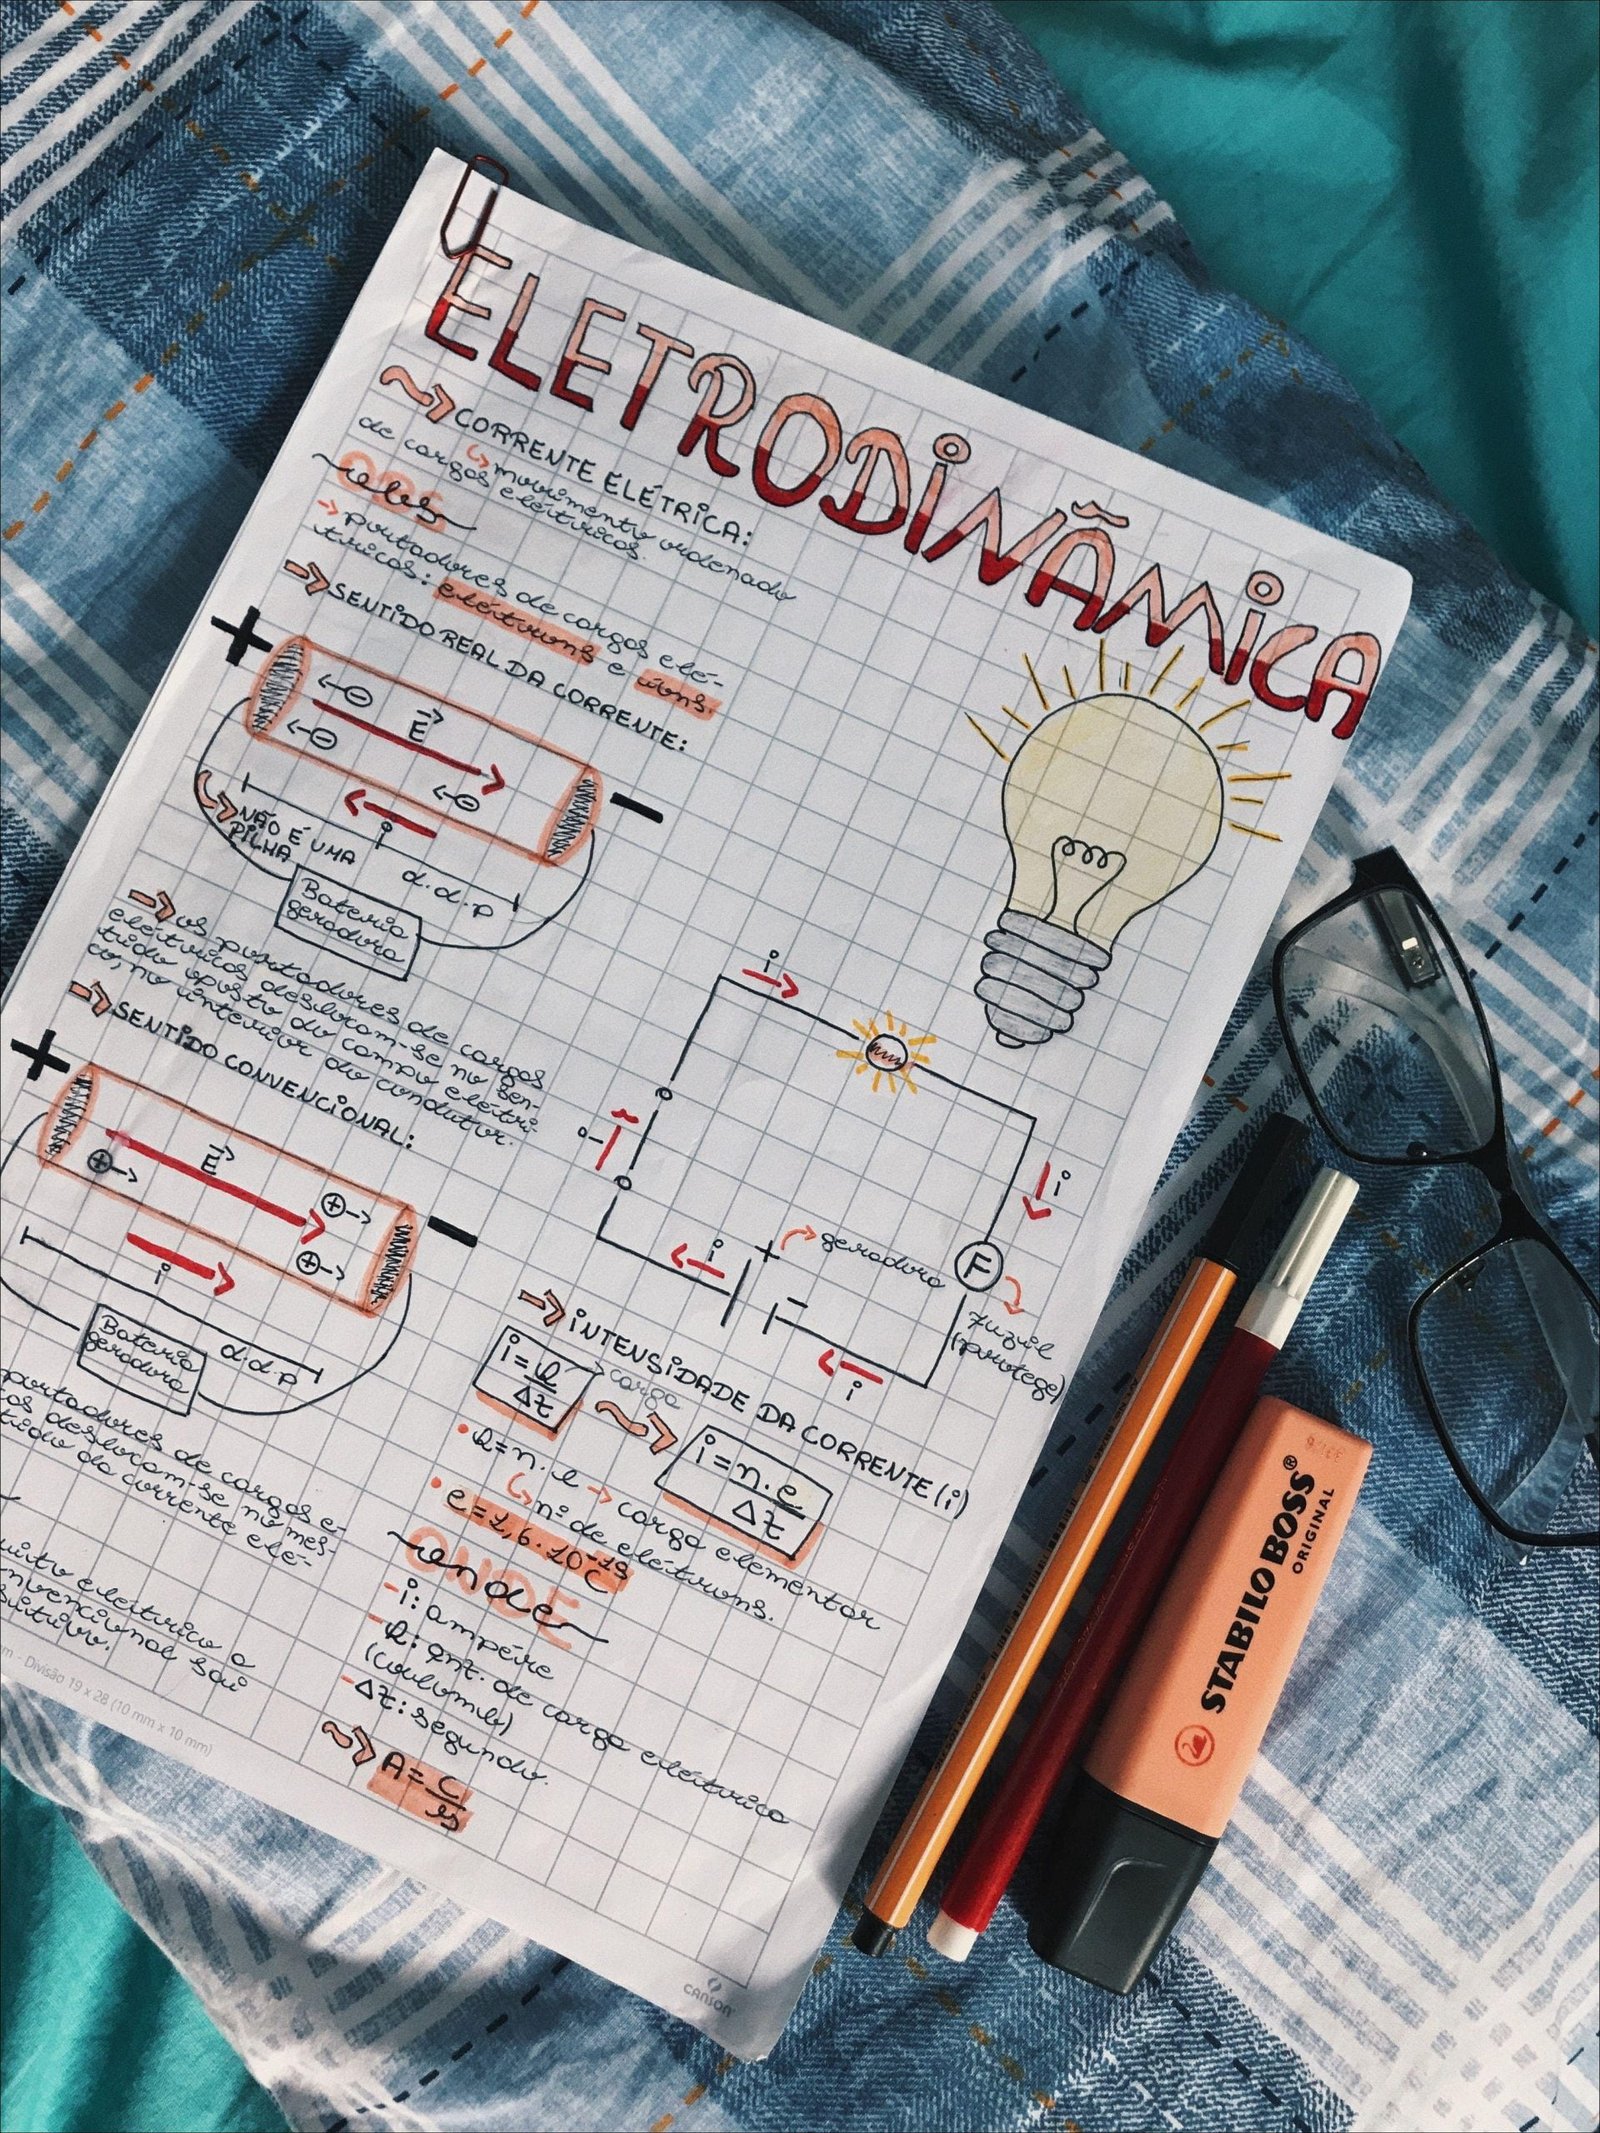 ELETRODINÂMICA
CORRENTE ELÉTRICA:
movimento ordenado
de cargas elétricas.
OBS
obs
portadores de cargas elé-
tricas: elétrons e íons.
SENTIDO REAL DA CORRENTE:
+
E
i
-
NÃO É UMA
PILHA
d.d.p
Bateria
geradora
os portadores de cargas
elétricas deslocam-se no sen-
tido oposto do campo elétri-
co, no interior do condutor.
SENTIDO CONVENCIONAL:
+
E
i
-
d.d.p
Bateria
geradora
portadores de cargas e-
cas deslocam-se no mes-
tido da corrente elé-
elétrico a
nvencional sai
sitivo.
m - Divisão 19 x 28 (10 mm x 10 mm)
i
i
i
+
geradora
-
F
fuzil
(protege)
i
INTENSIDADE DA CORRENTE (i)
i = Q/Δt
carga
i = n.e/Δt
Q = n.e → carga elementar
nº de elétrons.
e = 1,6.10⁻¹⁹ C
ONDE
onde
- i: ampére
- Q: qnt. de carga elétrica
(coulomb)
- Δt: segundo.
A = C/s
CANSON
STABILO BOSS®
ORIGINAL